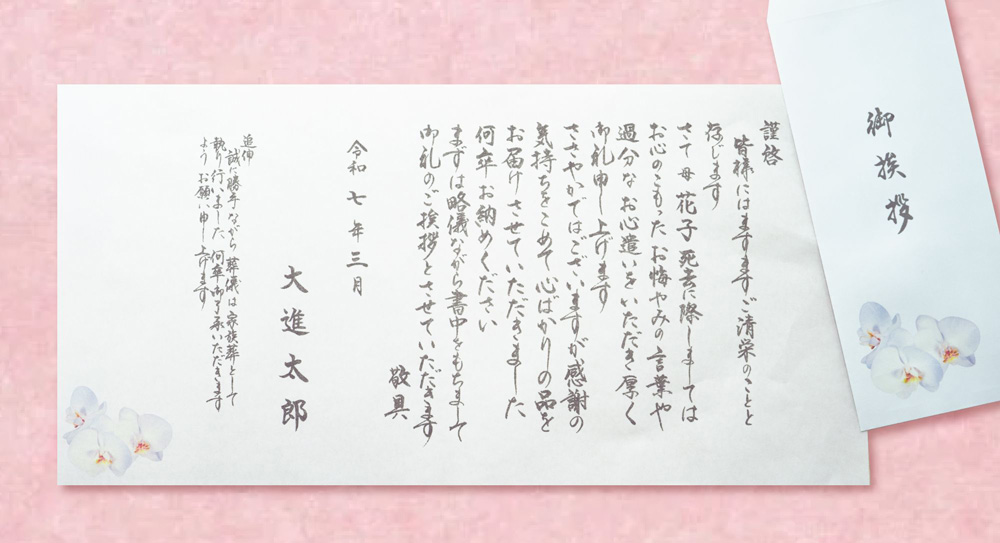 御挨拶
謹啓
皆様にはますますご清栄のことと
存じます
さて 母 花子 死去に際しましては
お心のこもった お悔やみの言葉や
過分なお心遣いをいただき 厚く
御礼申し上げます
ささやかではございますが 感謝の
気持ちをこめて 心ばかりの品を
お届けさせていただきました
何卒 お納めください
まずは略儀ながら 書中をもちまして
御礼のご挨拶とさせていただきます
敬具
令和 七 年 三 月
大進太郎
追伸
誠に勝手ながら 葬儀は家族葬として
執り行いました 何卒御了承いただきます
よう お願い申し上げます